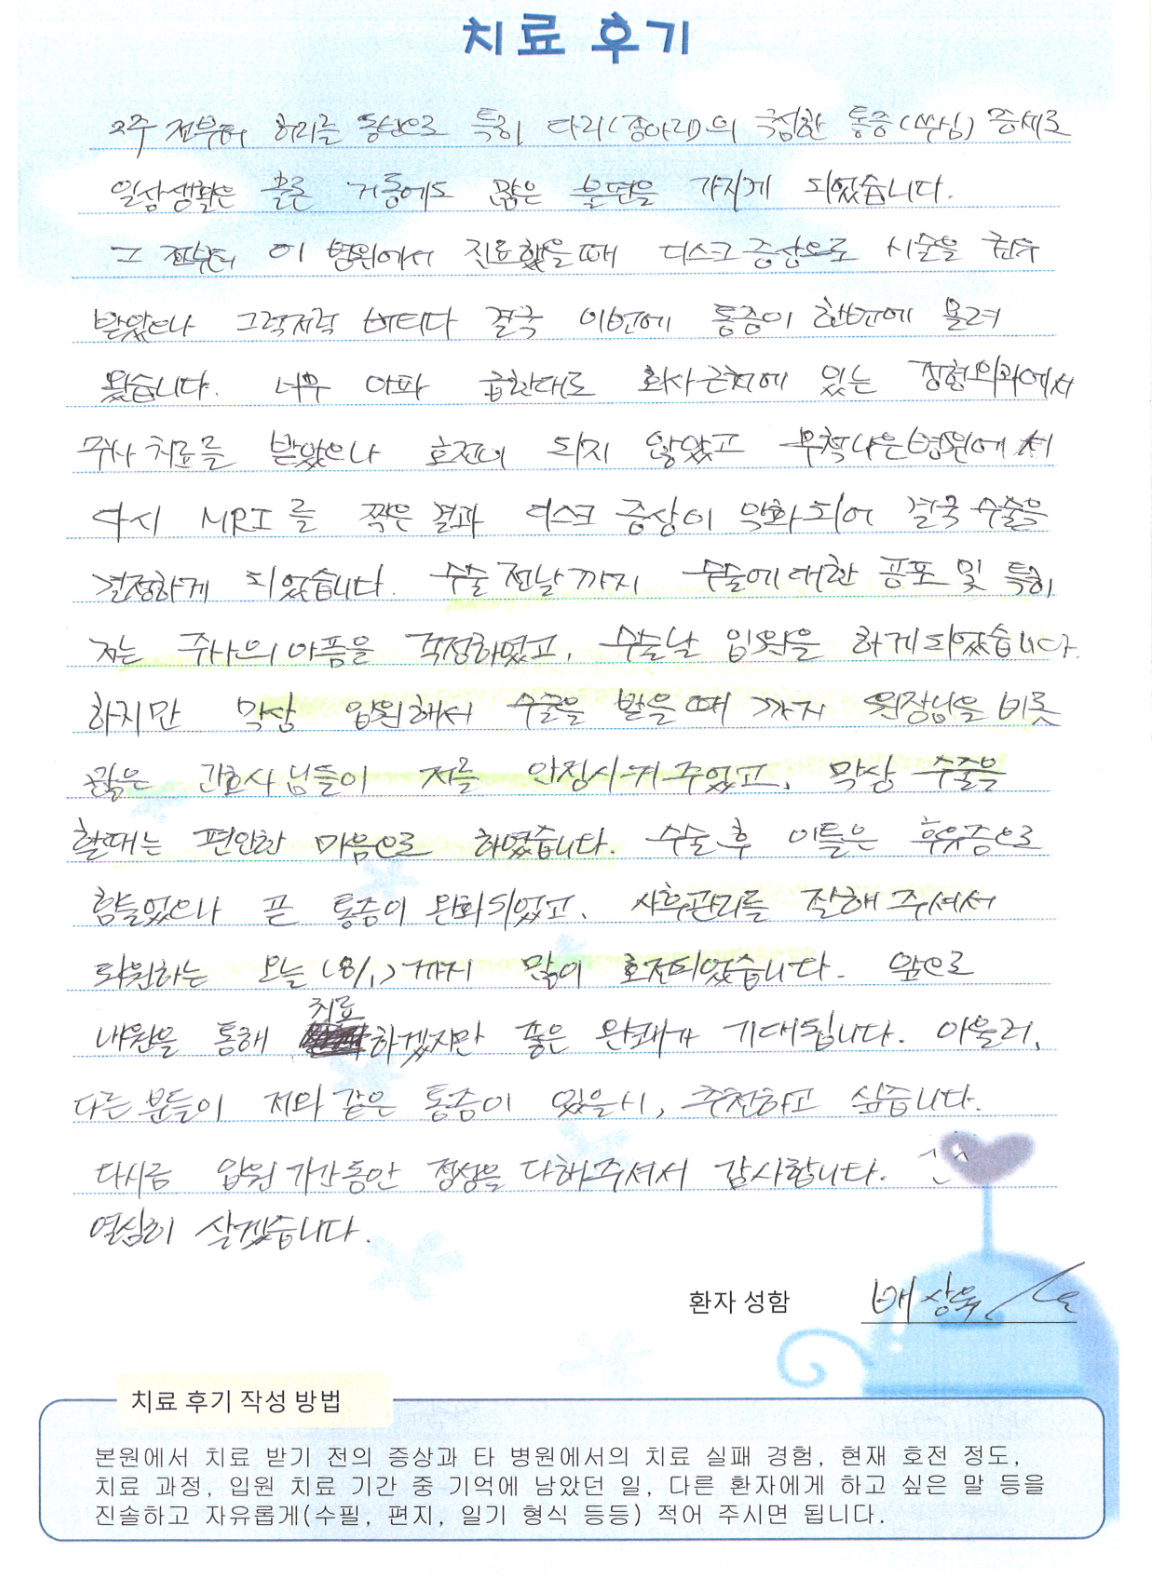 치료 후기
2주 전부터 허리를 동반으로 특히 다리(종아리)의 극심한 통증(쑤심) 증세로
일상생활은 물론 거동에도 많은 불편을 가지게 되었습니다.
그 전부터 이 병원에서 진료했을때 디스크증상으로 시술을 권유
받았으나 그럭저럭 버티다 결국 이번에 통증이 한번에 몰려
왔습니다. 너무 아파 급한대로 회사근처에 있는 정형외과에서
주사 치료를 받았으나 호전이 되지 않았고 무척나은병원에서
다시 MRI를 찍은 결과 디스크 증상이 악화되어 결국 수술을
결정하게 되었습니다. 수술 전날까지 수술에 대한 공포 및 특히
저는 주사의 아픔을 걱정하였고, 수술날 입원을 하게되었습니다.
하지만 막상 입원해서 수술을 받을때 까지 원장님을 비롯
많은 간호사님들이 저를 안정시켜주었고, 막상 수술을
할때는 편안한 마음으로 하였습니다. 수술 후 이틀은 후유증으로
힘들었으나 큰 통증이 완화되었고, 사후관리를 잘해주셔서
퇴원하는 오늘 (8/1)까지 많이 호전되었습니다. 앞으로
내원을 통해 치료하겠지만 좋은 완쾌가 기대됩니다. 아울러,
다른 분들이 저와 같은 통증이 있을시, 추천하고 싶습니다.
다시금 입원기간동안 정성을 다해주셔서 감사합니다.
열심히 살겠습니다.
환자 성함 배상욱
치료 후기 작성 방법
본원에서 치료 받기 전의 증상과 타 병원에서의 치료 실패 경험, 현재 호전 정도,
치료 과정, 입원 치료 기간 중 기억에 남았던 일, 다른 환자에게 하고 싶은 말 등을
진솔하고 자유롭게(수필, 편지, 일기 형식 등등) 적어 주시면 됩니다.